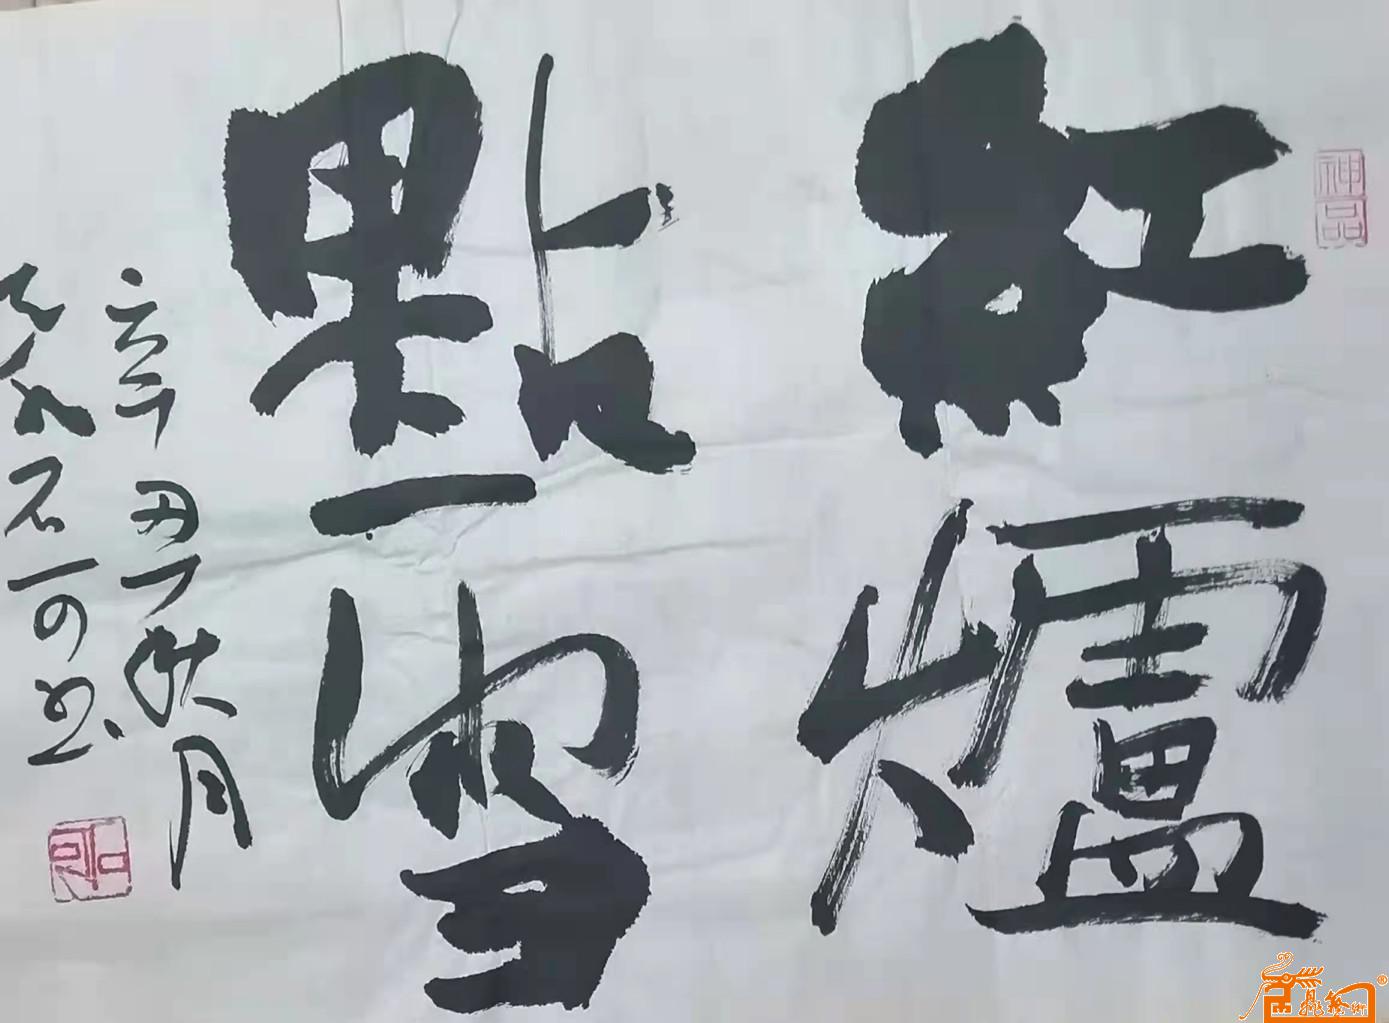 神品
紅爐
點雪
辛丑秋月
石可書